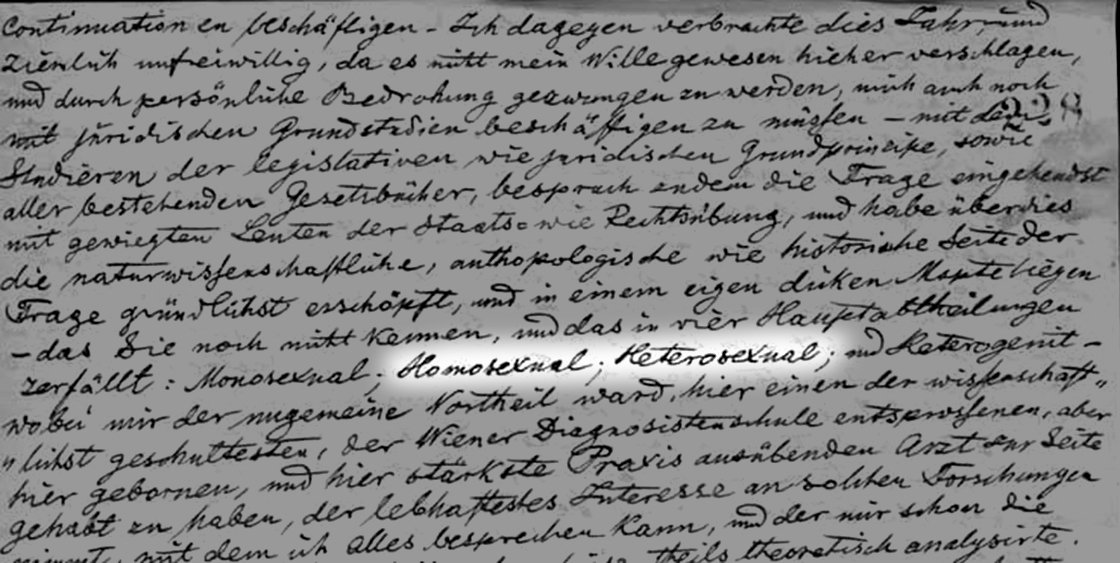 Continuation en beschäftigen – Ich dagegen verbrachte dies Jahr, und
ziemlich unfreiwillig, da es nicht mein Wille gewesen hieher verschlagen,
und durch persönliche Bedrohung gezwungen zu werden, mich auch noch
mit juridischen Grundstudien beschäftigen zu müssen – mit dem
Studieren der legislativen wie juridischen Grundprincipe, sowie
aller bestehenden Gesetzbücher, besprach zudem die Frage eingehendst
mit gewiegten Leuten der Staats= wie Rechtsübung, und habe überdies
die naturwissenschaftliche, anthopologische wie historische Seite der
Frage gründlichst erschöpft, und in einem eigen dicken Mspte liegen
– das Sie noch nicht kennen, und das in vier Hauptabtheilungen
zerfällt: Monosexual; Homosexual; Heterosexual; und Heterogenit –
wobei mir der ungemeine Vortheil ward, hier einen der wissenschaft„
„lichst geschultesten, der Wiener Diagnostistenschule entsprossenen, aber
hier gebornen, und hier stärkste Praxis ausübenden Arzt zur Seite
gehabt zu haben, der lebhaftestes Interesse an solchen Forschungen
nimmt, mit dem ich alles besprechen kann, und der mir schon die
theils theoretisch analysirte.